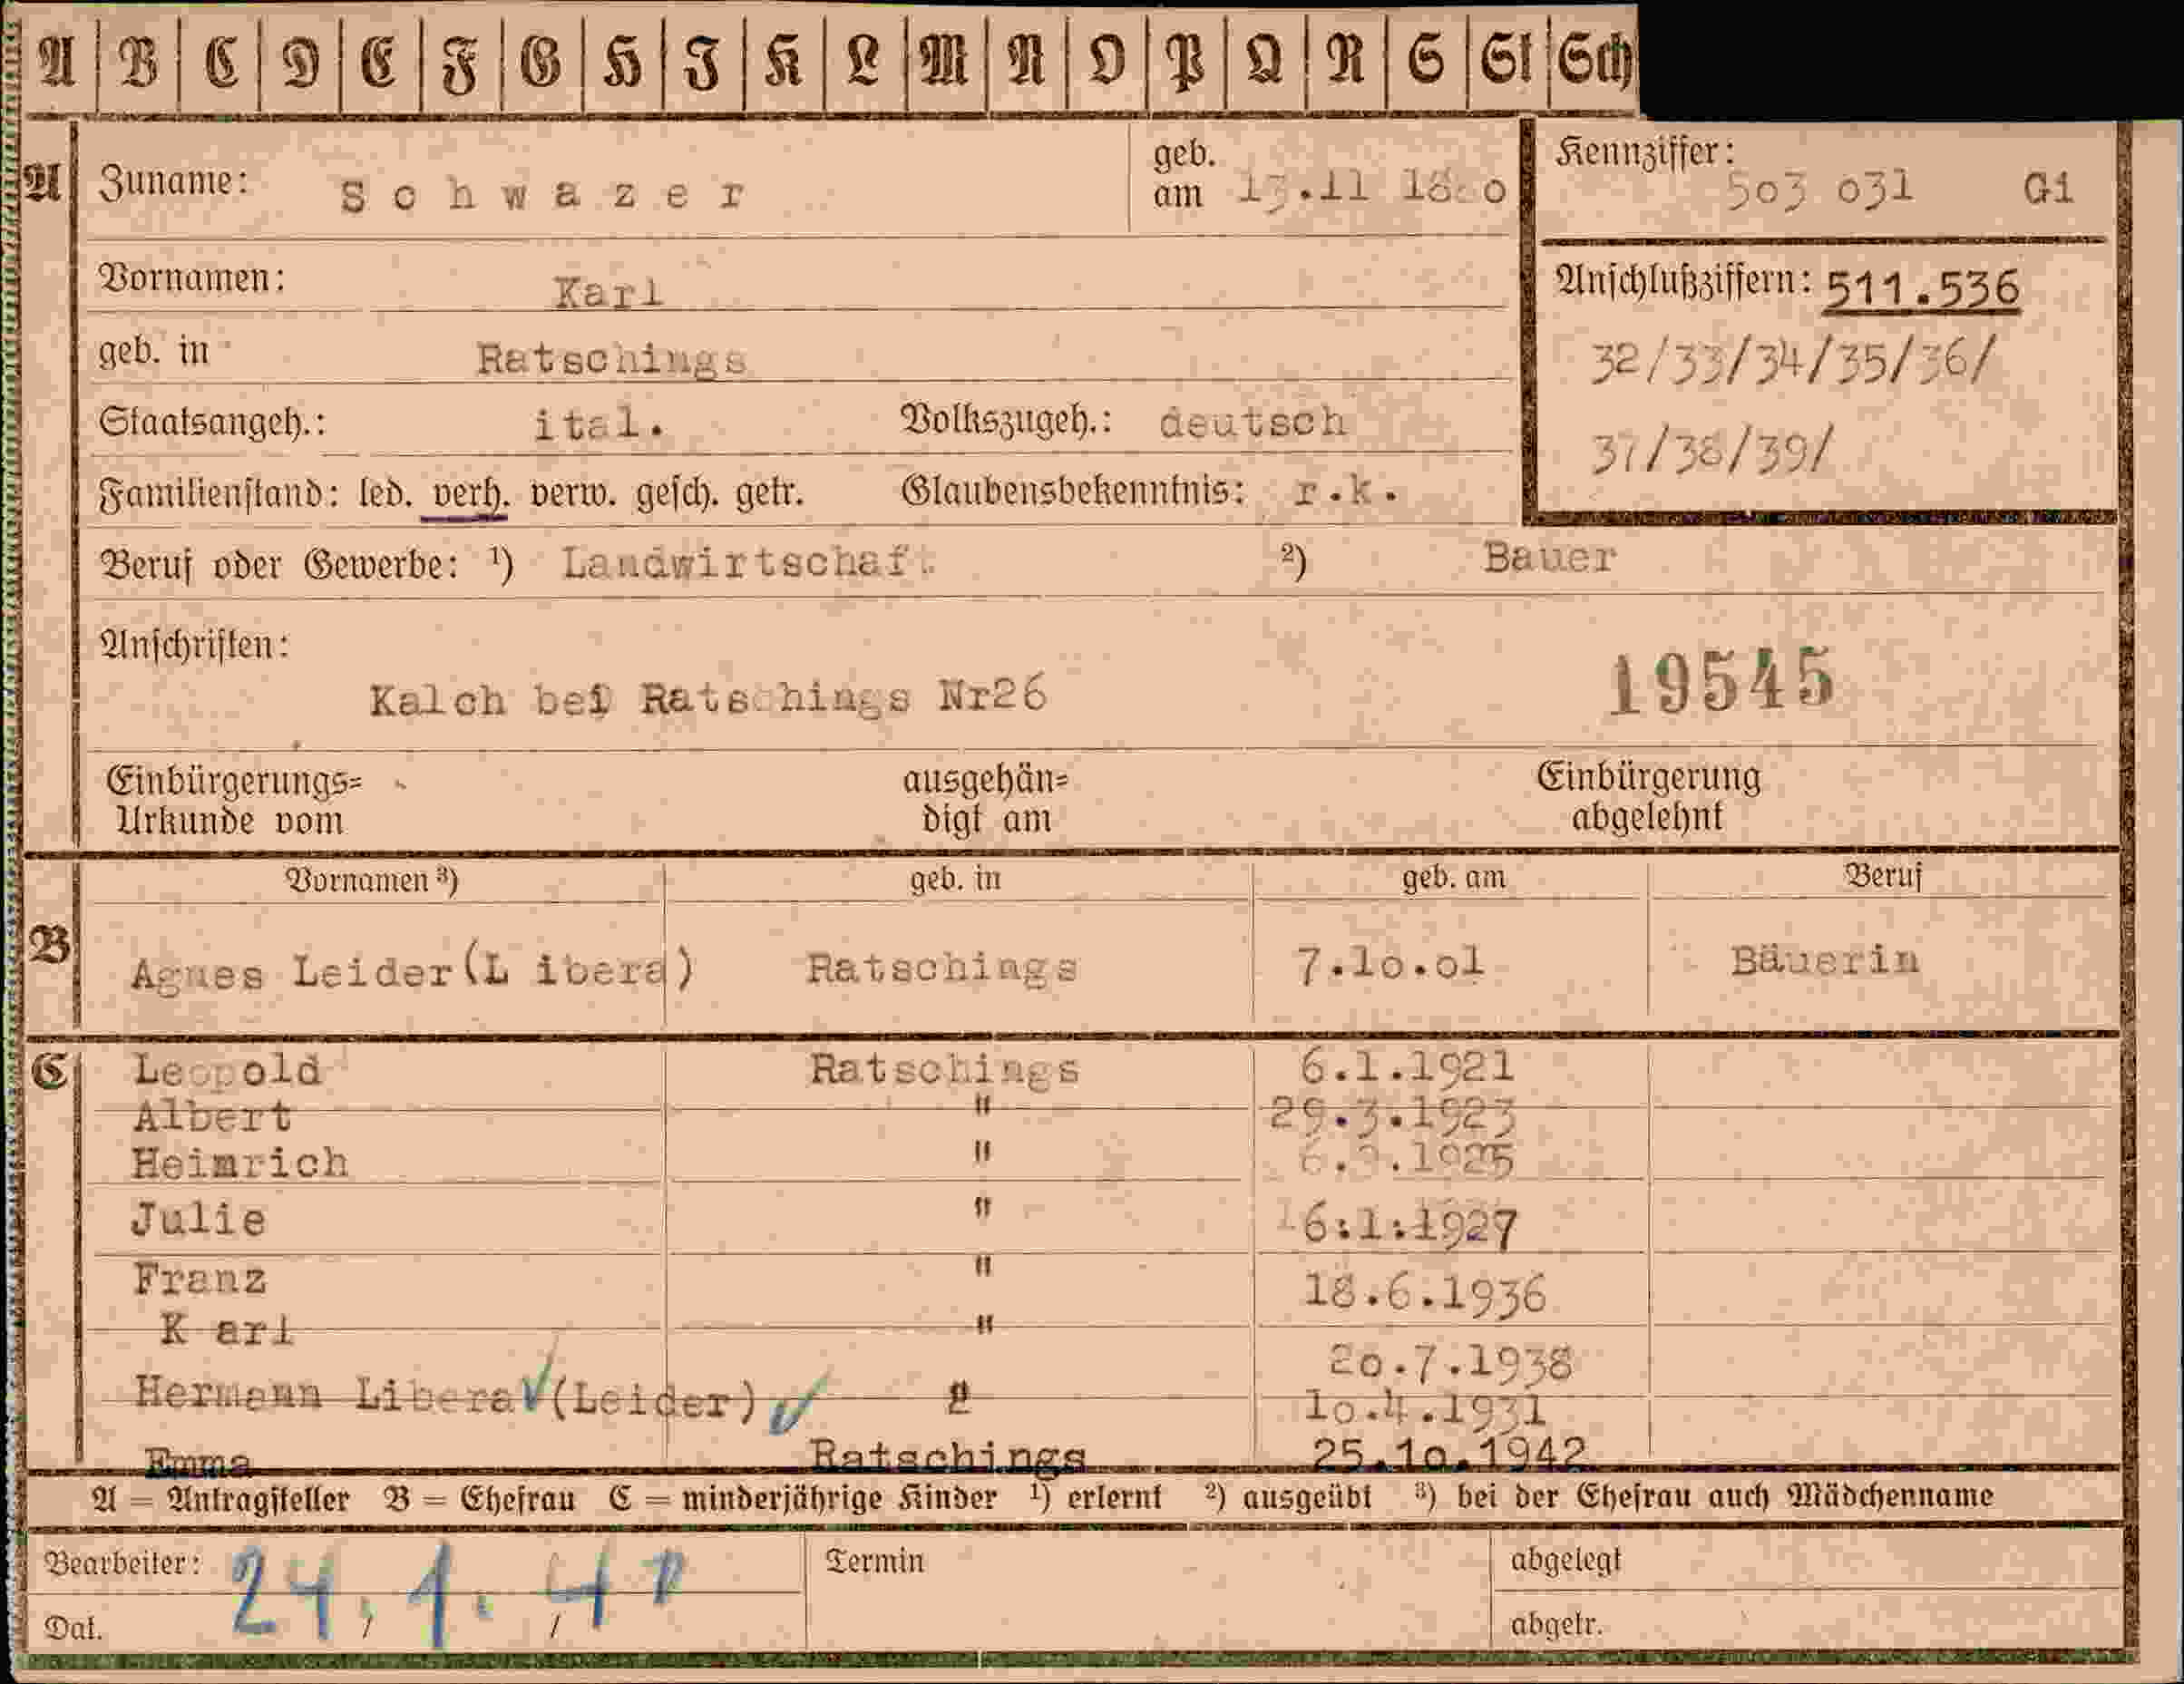 A B C D E F G H I K L M N O P Q R S St Sch
A Zuname: Schwazer geb. am Kennziffer: 503 031 Gi
Vornamen: Karl Anschlußziffern: 511.536
geb. in Ratschings 32/33/34/35/36/
Staatsangeh.: ital. Volkszugeh.: deutsch 37/38/39/
Familienstand: led. verh. verw. gesch. getr. Glaubensbekenntnis: r.k.
Beruf oder Gewerbe: ¹) Landwirtschaft ²) Bauer
Anschriften:
Kalch bei Ratschings Nr26 19545
Einbürgerungs= ausgehän= Einbürgerung
Urkunde vom digt am abgelehnt
Vornamen ³) geb. in geb. am Beruf
B Agnes Leider(L ibera) Ratschings 7.10.01 Bäuerin
C Leopold Ratschings 6.1.1921
Albert " 29.3.1923
Heimrich "
Julie " 16:1:1927
Franz " 18.6.1936
K arl " 20.7.1938
Hermann Libera (Leider) 10.4.1931
Emma Ratschings 25.10.1942
A = Antragsteller B = Ehefrau C = minderjährige Kinder ¹) erlernt ²) ausgeübt ³) bei der Ehefrau auch Mädchenname
Bearbeiter: 24.1.40 Termin abgelegt
Dat. / / abgetr.